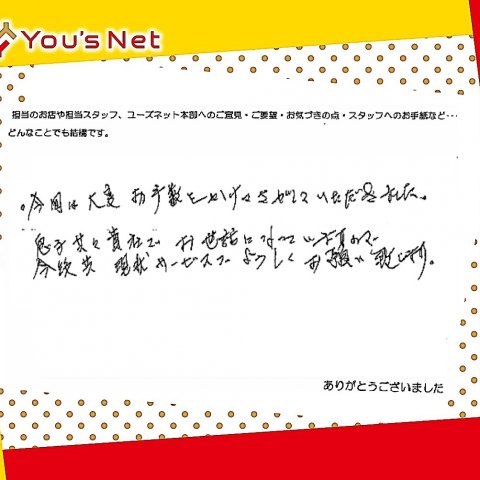 You's Net
担当のお店や担当スタッフ、ユーズネット本部へのご意見・ご要望・お気づきの点・スタッフへのお手紙など…
どんなことでも結構です。
今回は大変お手数をかけさせていただきました。
息子共々貴社でお世話になっていますので
今後共現状サービスでよろしくお願い致します。
ありがとうございました